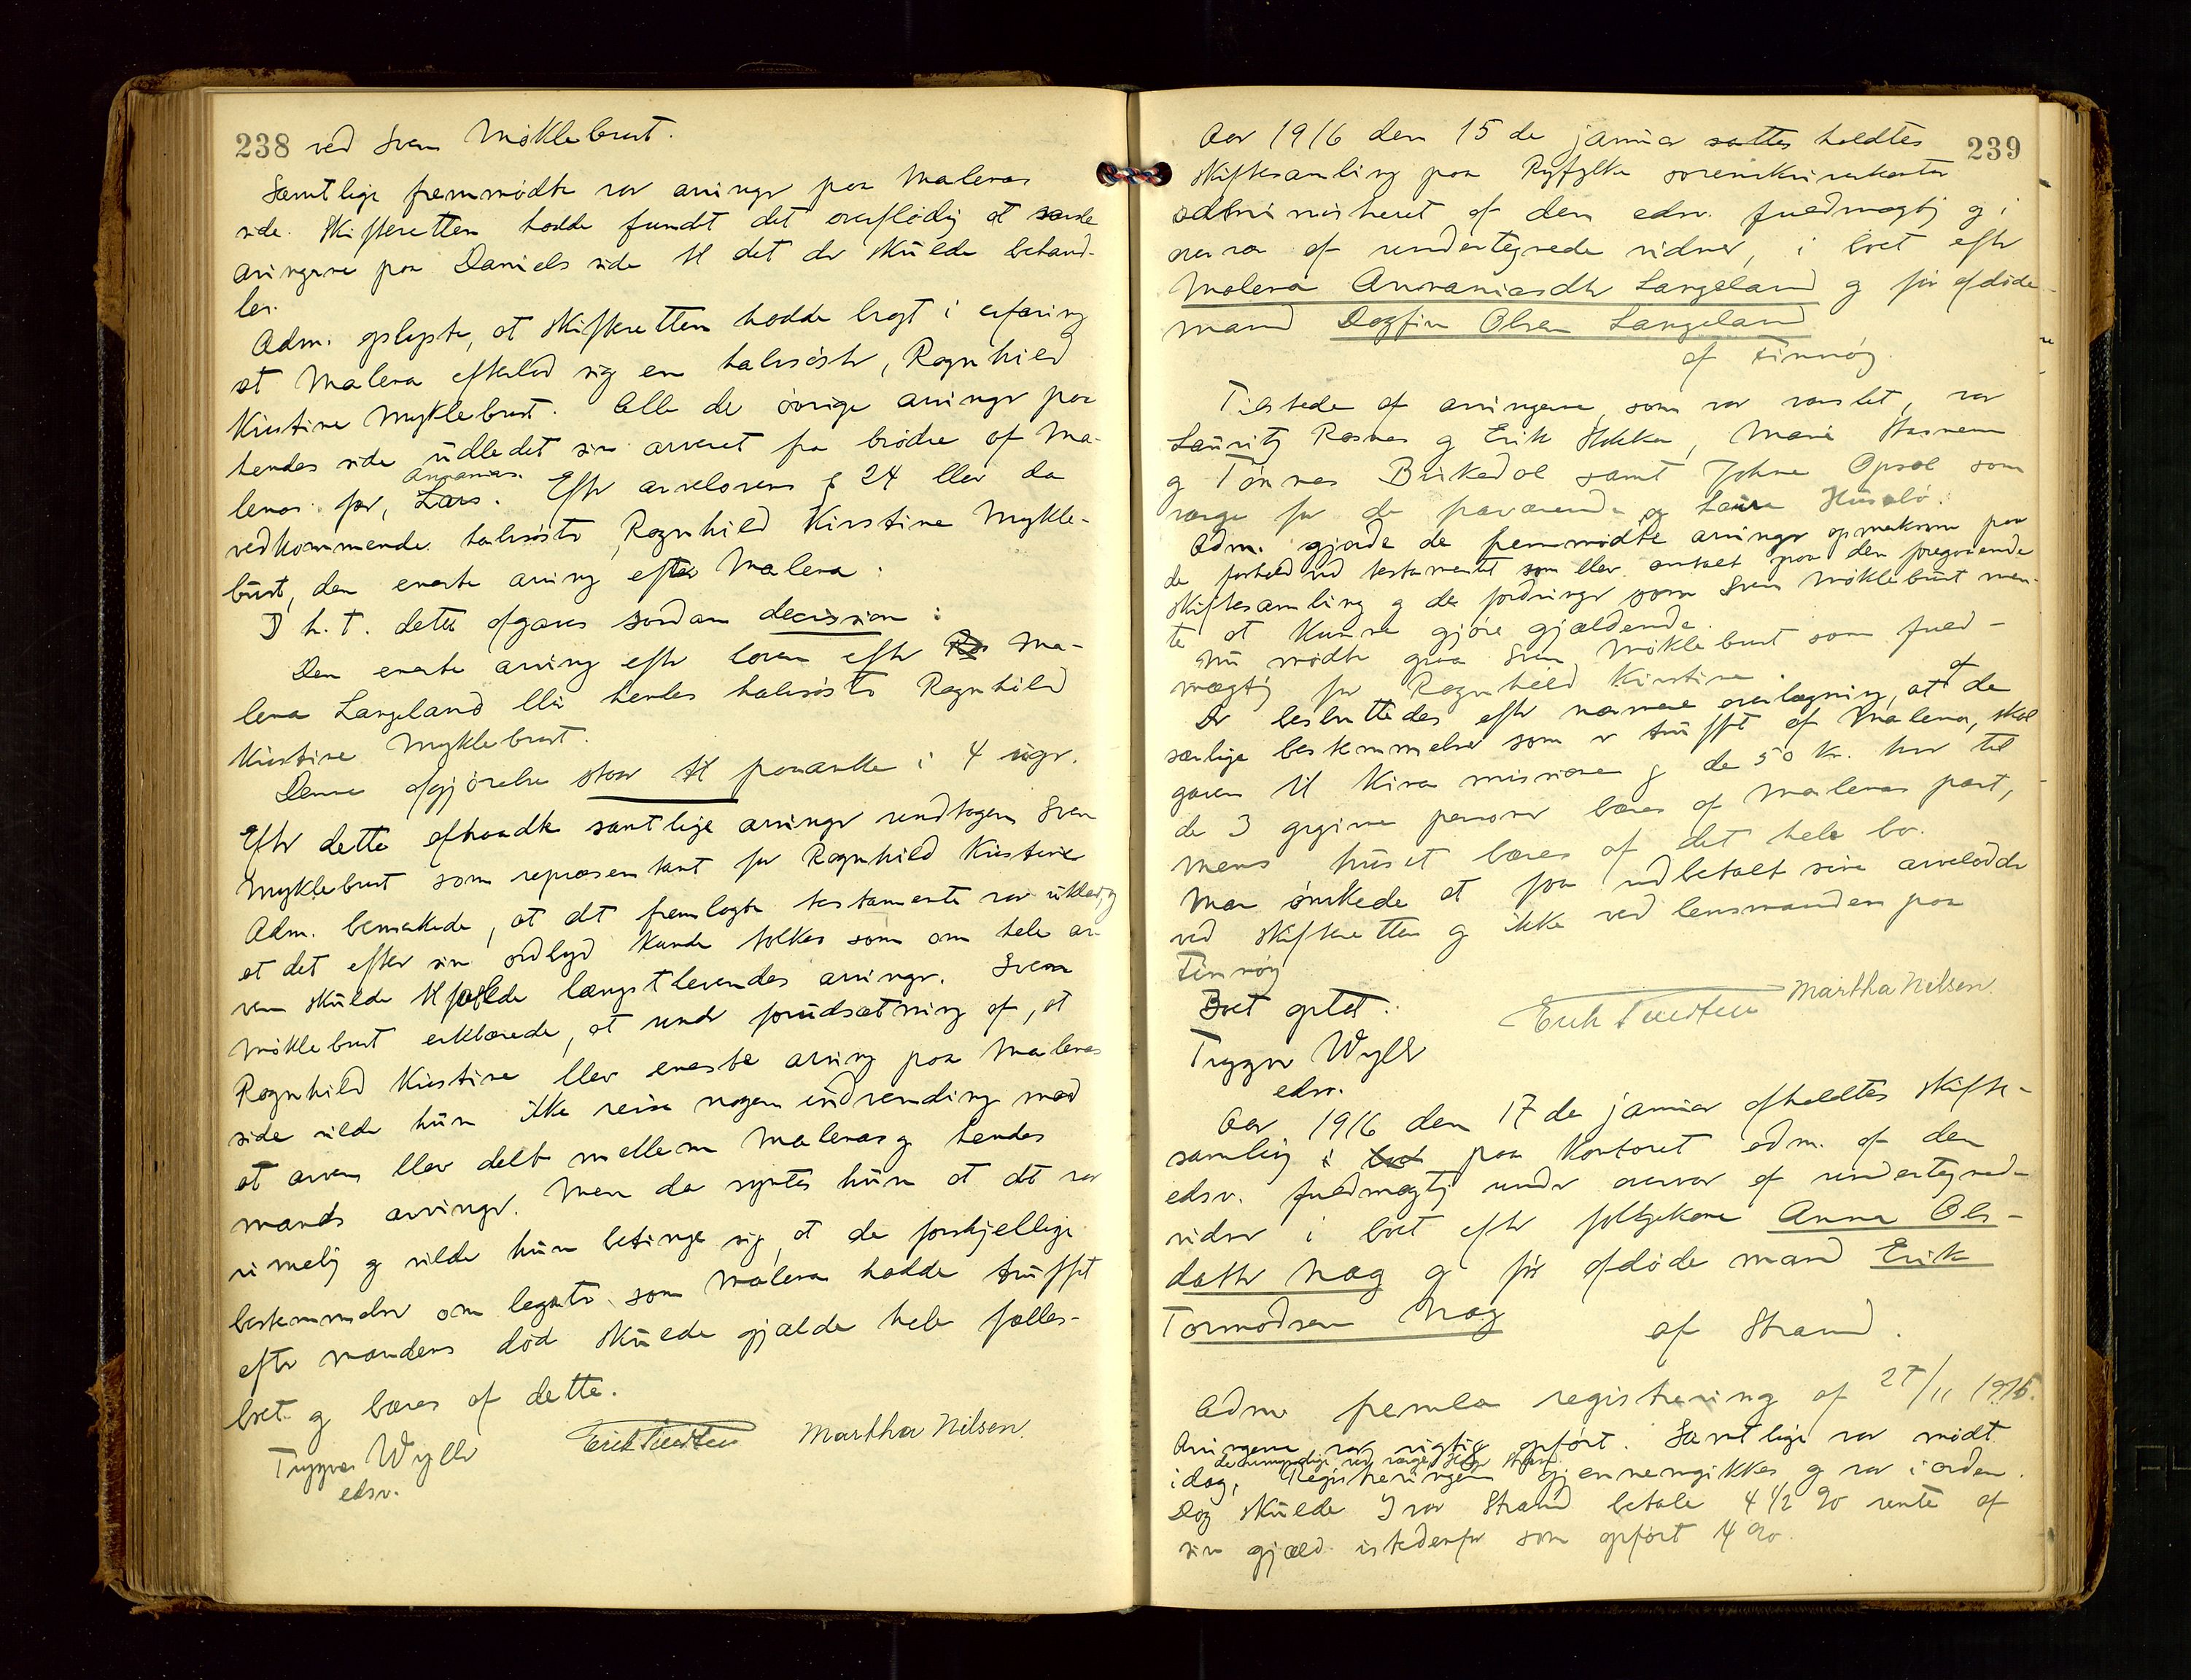 238 ved Sven Mökleburst.
Samtlige fremmödte var arvinger paa Malenas
side. Skifteretten hadde fundet det overflödig at varsle
arvingerne paa Daniels side til det der skulde behand-
les.
Adm. oplyste, at skifteretten hadde bragt i erfaring
at Malena efterlod sig en halvsöster, Ragnhild
Kirstine Myklebust. Alle de övrige arvinger paa
hendes side utledet sin arveret fra brödre af Ma-
lenas far, Lars. Ananias. Efter arvelovens § 24 blev da
vedkommende halvsöster, Ragnhild Kirstine Mykle-
bust, den eneste arving efter Malena.
I h. t. dette afgaves saadan decission:
Den eneste arving efter loven efter Ma-
lena Langeland blir hendes halvsöster Ragnhild
Kirstine Myklebust.
Denne afgjörelse staar til paaanke i 4 uger.
Efter dette afhandlet samtlige arvinger undtagen Sven
Myklebust som repræsentant for Ragnhild Kirstine
Adm. bemerkede, at det fremlagte testamente var uklart og
at det efter sin ordlyd kunde tolkes som om hele ar-
ven skulde tilfalde længstlevendes arvinger. Sven
Möklebust erklærede, at under forudsætning af, at
Ragnhild Kirstine blev eneste arving paa Malenas
side vilde hun ikke reise nogen indvending mod
at arven blev delt mellem Malenas og hendes
mands arvinger. Men da syntes hun at det var
rimelig og vilde hun betinge sig, at de forskjellige
bestemmelser om legater som Malena hadde truffet
efter mandens död skulde gjælde hele fælles-
boet og bæres af dette.
Erik Tveiten Martha Nilsen.
Trygve Wyller
edsv.
239
Aar 1916 den 15 de januar sattes holdtes
skiftesamling paa Ryfylke sorenskriverkontor
administreret af den edsv. fuldmægtig og i
overvær af undertegnede vidner, i boet efter
Malena Ananiasdtr Langeland og för afdöde
mand Dagfin Olsen Langeland
af Finnöy.
Tilstede af arvingerne, som var varslet, var
Lauritz Rosnes og Erik Hokka, Marie Stasnem
og Tönnes Birkedal samt Johne Opsal som
verge for de fraværende og Laura Huslö.
Adm. gjorde de fremmödte arvinger opmerksom paa
de forhold ved testamentet som blev omtalt paa den foregaaende
skiftesamling og de fordringer som Sven Möklebust men-
te at kunne gjöre gjældende.
Nu mödte ogsaa Sven Möklebust som fuld-
mægtig for Ragnhild Kirstine.
Der besluttedes efter nærmere overlægning, at af de
særlige bestemmelser som er truffet af Malena, skal
gaven til Kina missionen og de 50 kr. hver til
de 3 gugivne personer bæres af Malenas part,
mens huset bæres af det hele bo.
Man önskede at faa utbetalt sine arvelodder
ved skifteretten og ikke ved lensmanden paa
Finnöy
Boet optat.
Erik Tveiten Martha Nilsen.
Trygve Wyller
edsv.
Aar 1916 den 17 de januar afholdtes skifte-
samling i boet paa kontoret adm. af den
edsv. fuldmægtig under overvær af undertegnede
vidner i boet efter föderaadskone Anna Ols-
datter Nag og för afdöde mand Erik
Tormodsen Nag
af Strand.
Adm. fremla registrering af 27/11 1915.
Arvingerne var rigtig opfört. Samtlige var mödt
idag, Registreringen gjennemgikkes og var i orden.
Dog skulde Ivar Strand betale 4 1/2 % rente af
sin gjæld istedenfor som opfört 4 %.